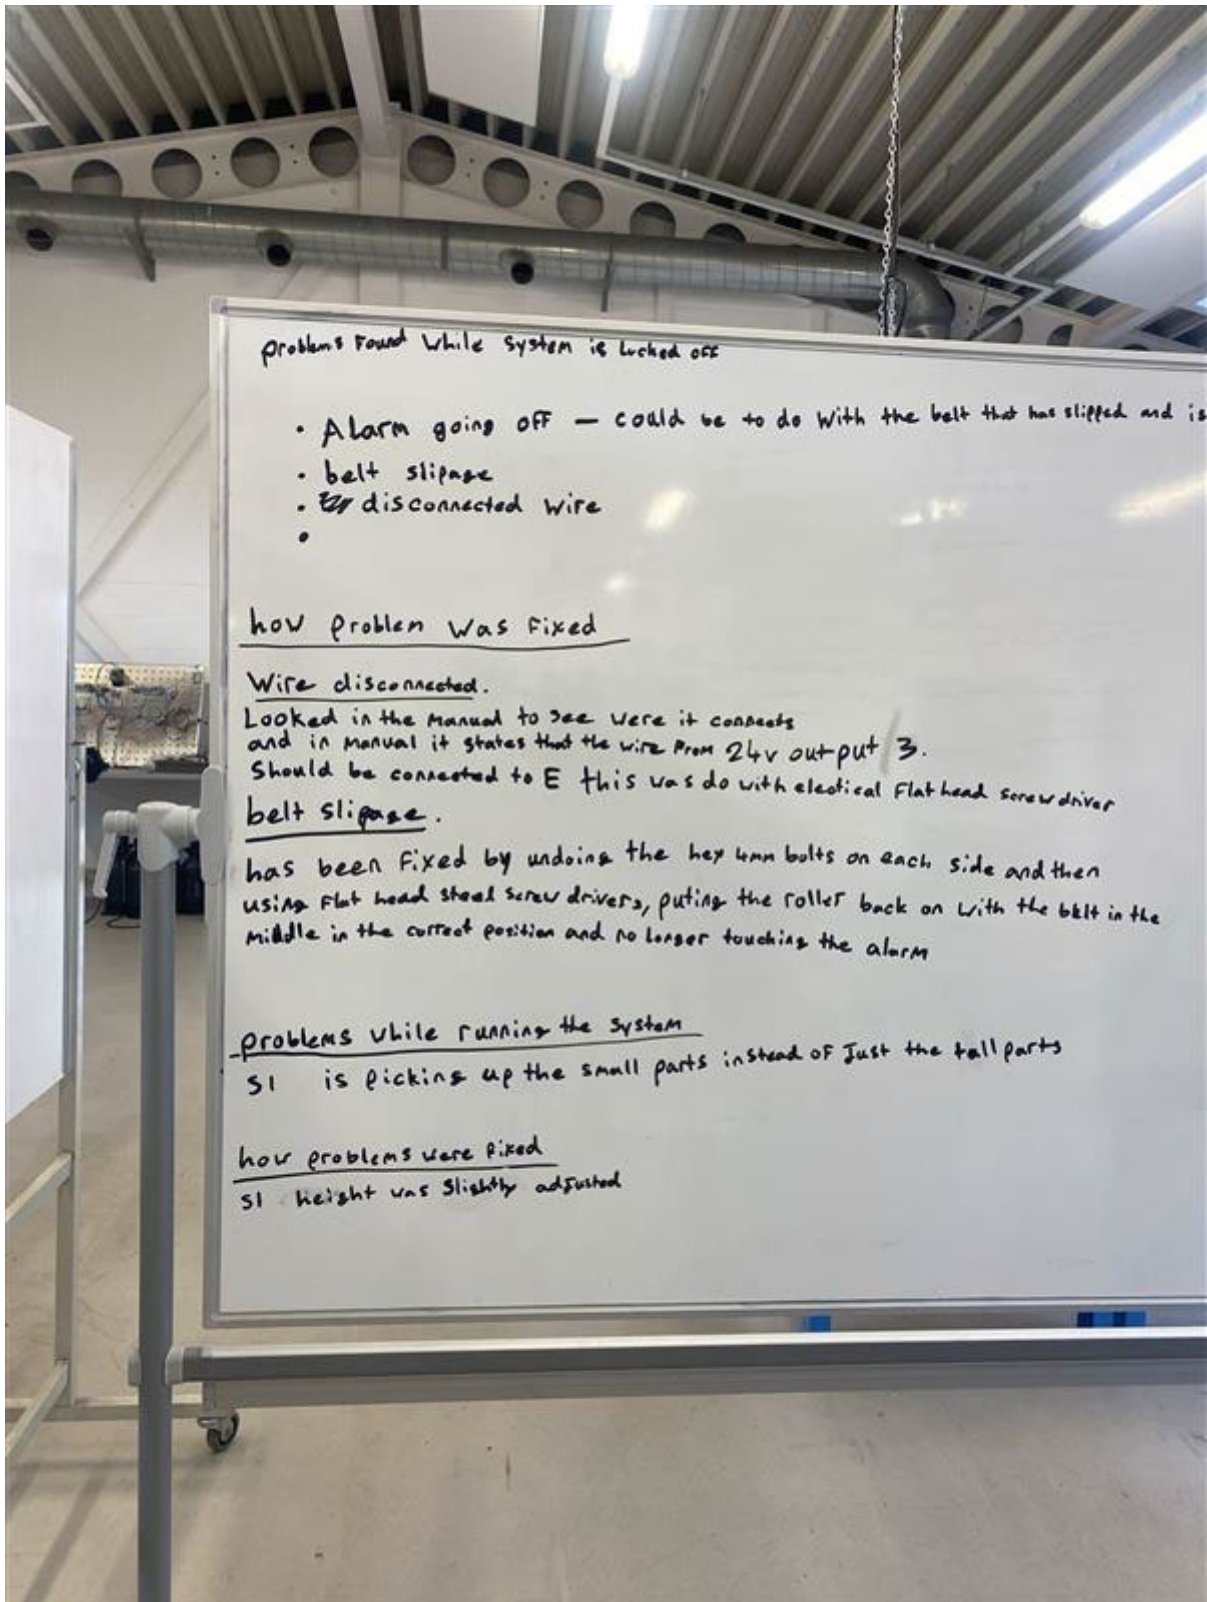 problems Found While System is Locked off
• Alarm going off – could be to do With the belt that has slipped and is
• belt slipage
• disconnected wire
•
how problem was Fixed
Wire disconnected.
Looked in the manual to see were it connects
and in manual it states that the wire from 24v output 3.
Should be connected to E this was do with electical Flat head screwdriver
belt slipage.
has been fixed by undoing the hex 4mm bolts on each side and then
using Flat head steel screw drivers, puting the roller back on with the belt in the
middle in the correct position and no longer touching the alarm
problems while running the system
S1 is picking up the small parts instead of Just the tall parts
how problems were fixed
S1 height was slightly adjusted